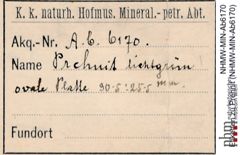 K. k. naturh. Hofmus. Mineral.-petr. Abt.
Akq.-Nr. A. b. 6170.
Name Prehnit lichtgrün
ovale Platte 30·5 : 25·5 mm.
Fundort
NHMW-MIN-Ab6170
(NHMW-MIN-Ab6170)
nhm